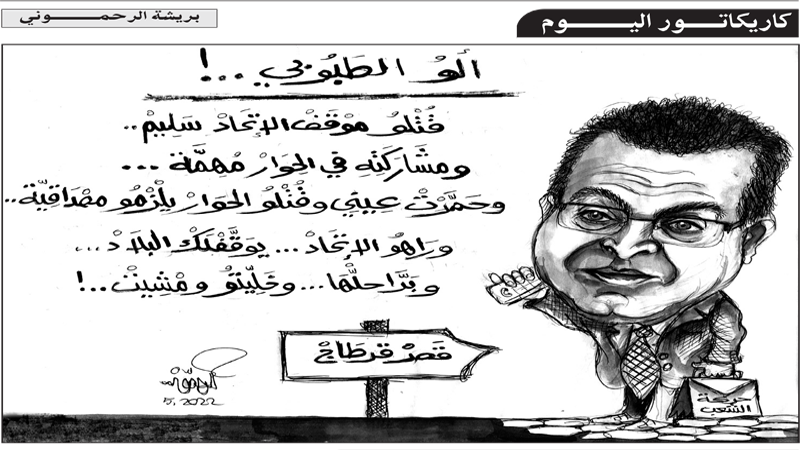 كاريكاتور اليوم
بريشة الرحموني
ألو الطبوبي ...!
قُتْلُو موْقَفْ الإتحادْ سَلِيمْ..
ومشَارَكتِهِ في الحِوارْ مُهمَّة ...
وحَمَّرْتْ عِينِي وقُتْلُو الحوَارْ يلْزْمُو مصْدَاقيّة..
ورَاهُو الإتحَادْ... يوَقَّفْلَكْ البْلَادْ...
وبَرَّا حلْهَا... وخَلِّيتُو ومْشِيتْ..!
قصْر قرطاج
5.2022
حركة
الشعب